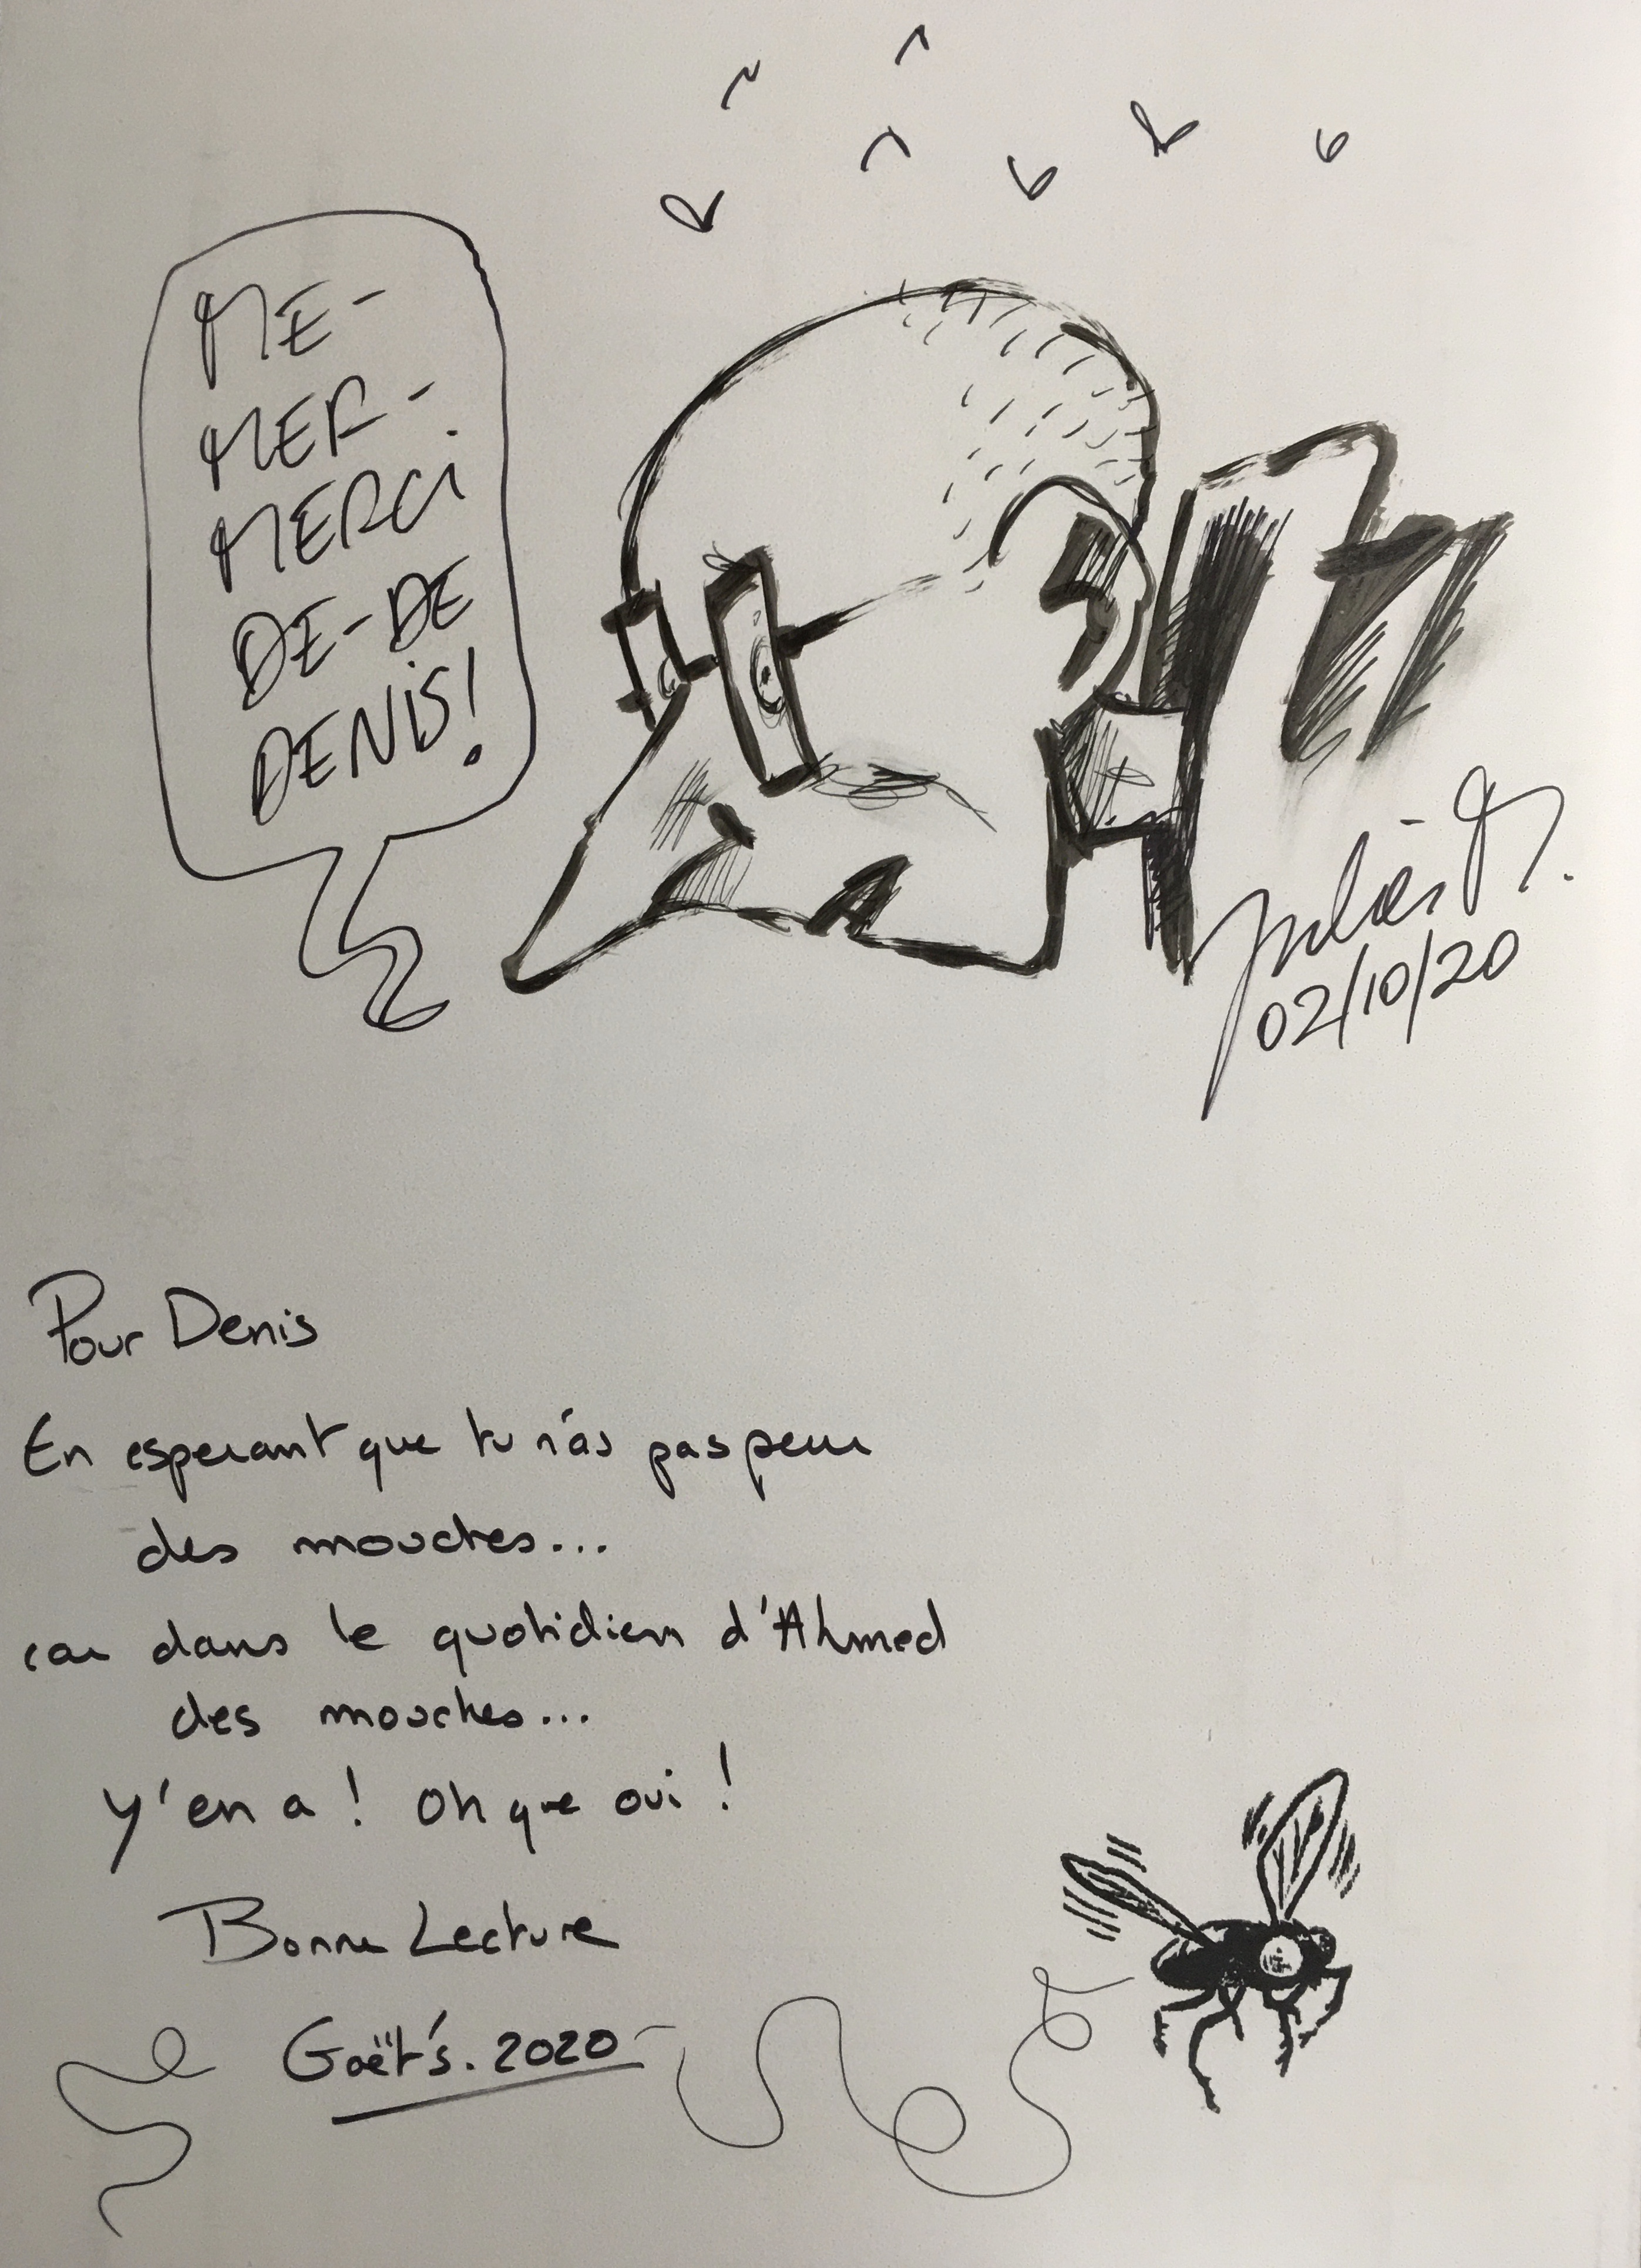 ME-
MER-
MERCi
DE-DE
DENiS!
02/10/20
Pour Denis
En esperant que tu n'as pas peur
des mouches...
car dans le quotidien d'Ahmed
des mouches...
y'en a ! Oh que oui !
Bonne Lecture
Gaët's. 2020